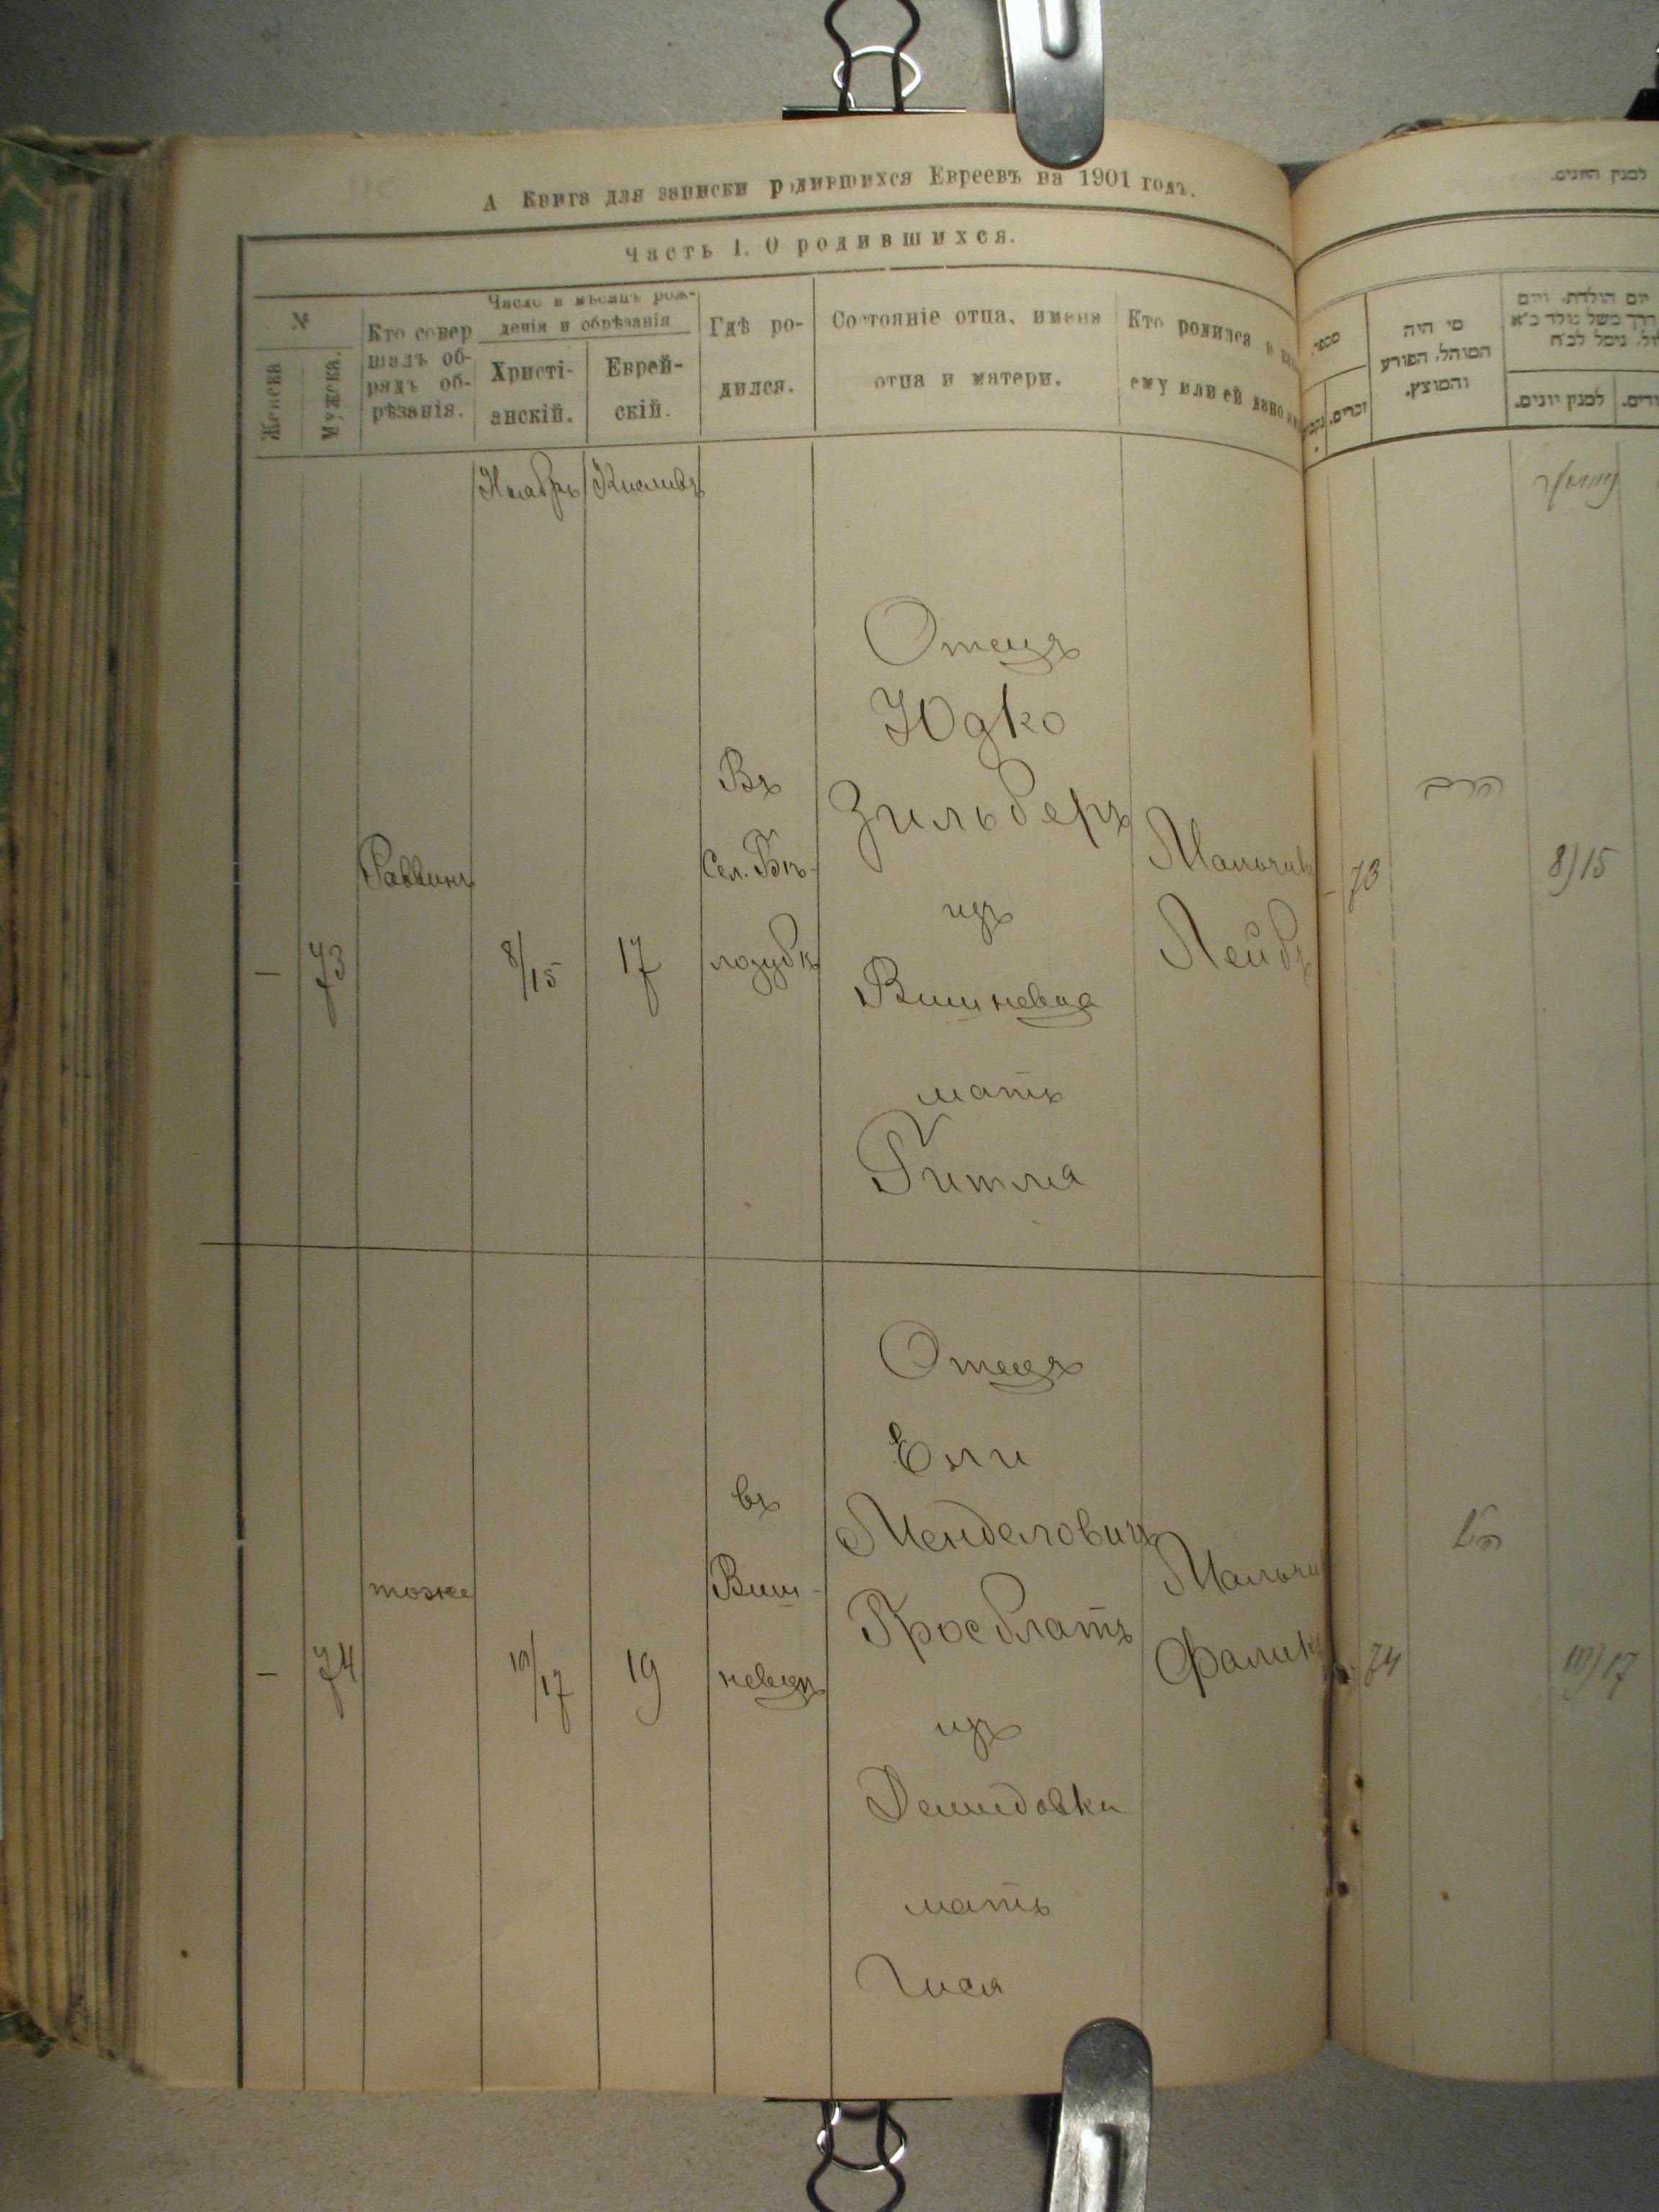 А Книга для записки родившихся Евреевъ на 1901 годъ.
Часть I. О родившихся.
№
Женска
Мужска.
Кто совер
шалъ об-
рядъ об-
рѣзанія.
Число и мѣсяцъ рож-
денія и обрѣзанія
Христі-
анскій.
Еврей-
скій.
Гдѣ ро-
дился.
Состояніе отца, имена
отца и матери.
Кто родился и
ему или ей дано
Ноябрь
Кисливъ
—
73
Раввинъ
8/15
17
Въ
Сел. Бѣ-
лозубкѣ
Отецъ
Юдко
Зильберъ
изъ
Вишневца
мать
Гитля
Мальчикъ
Лейбъ
—
74
тоже
10/17
19
въ
Виш-
невецѣ
Отецъ
Ели
Менделовичъ
Кросблатъ
изъ
Демидовки
мать
Гися
Мальчи
Фаликъ
למנין היונים.
מספר.
זכרים.
מי היה
המוהל, הפורע
והמוצץ.
יום הולדת, ויום
למנין יונים.
הרב
73
8)15
74
10)17